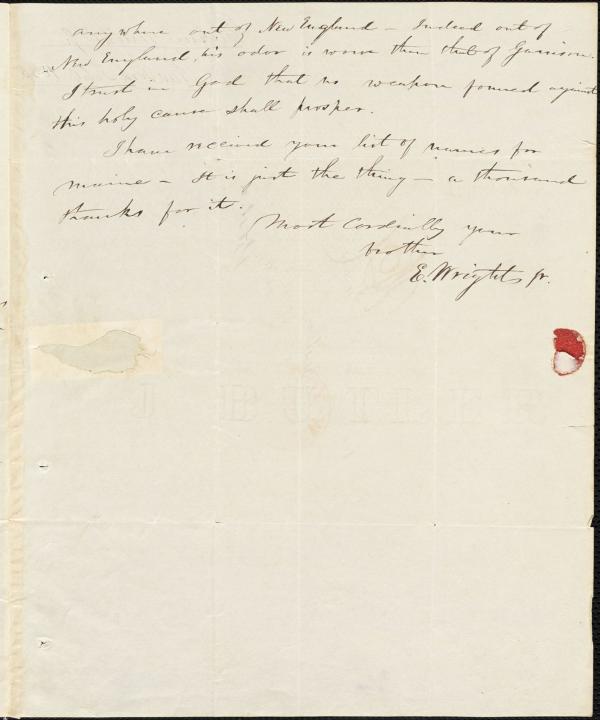 anywhere out of New England – Indeed out of
New England, his odor is worse than that of Garrison.
I trust in God that no weapon formed against
this holy cause shall prosper.
I have received your list of names for
Maine – It is just the thing – a thousand
thanks for it.
Most cordially your
brother
E. Wright, jr.